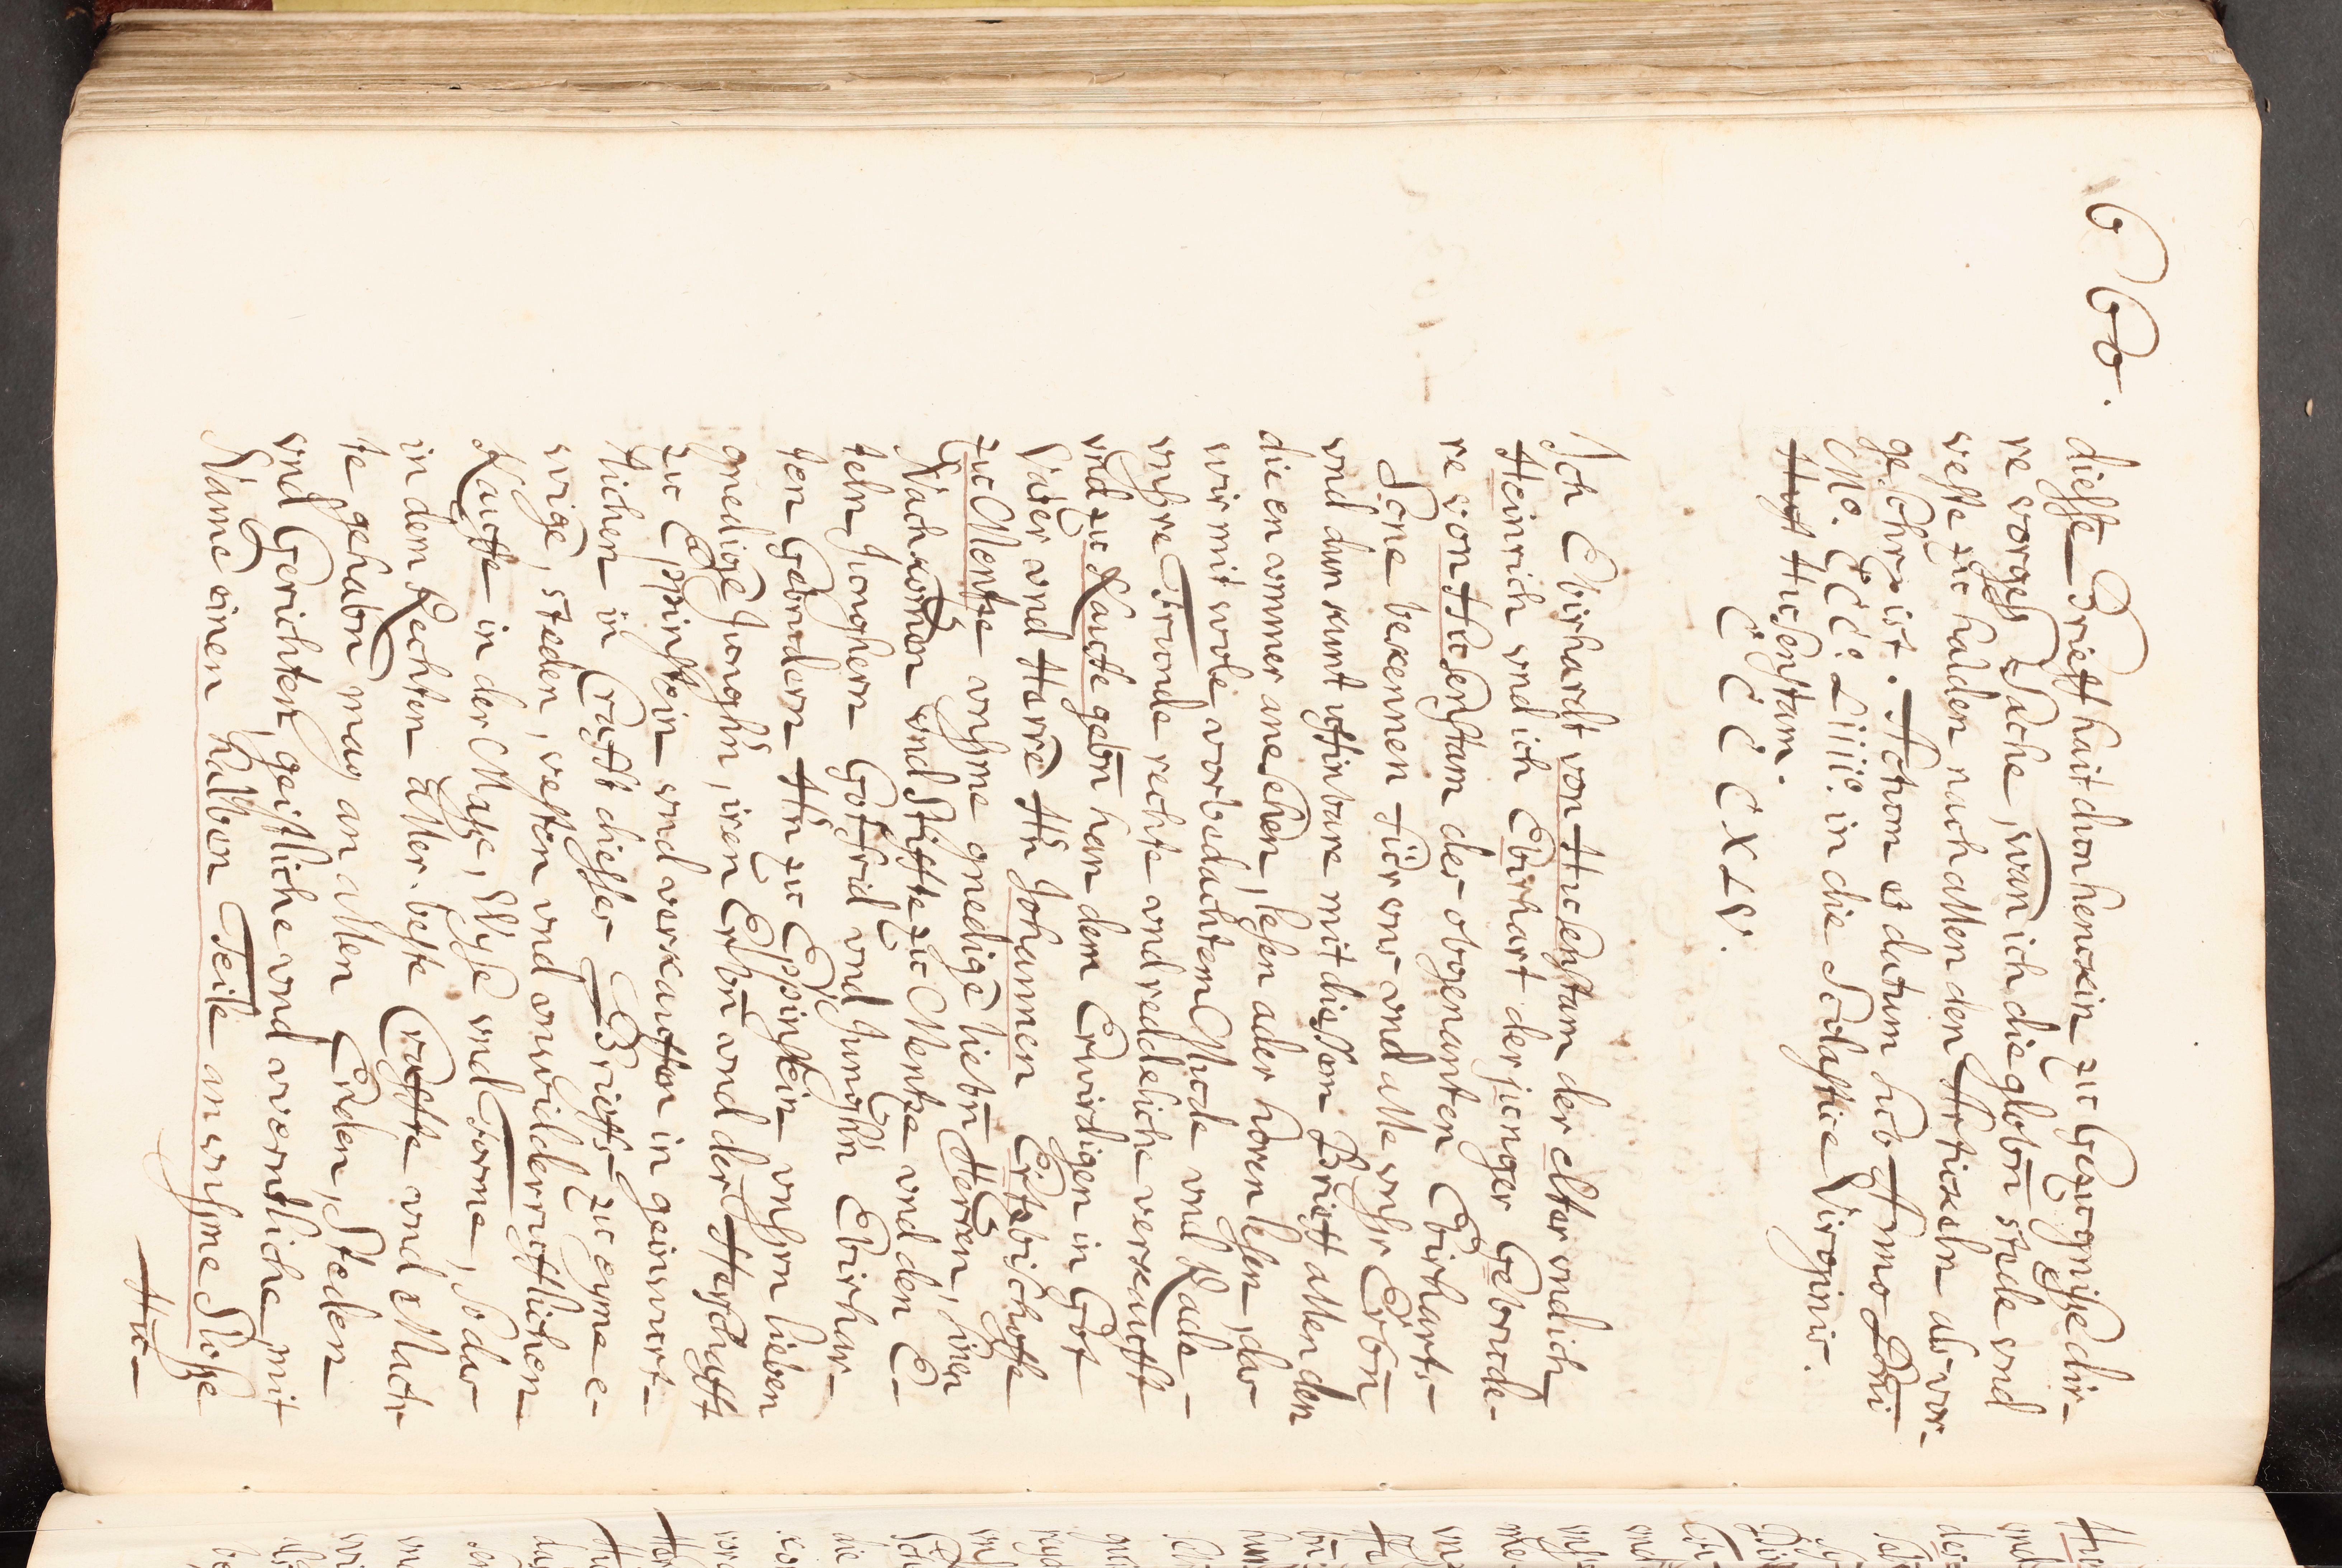 660.
diesse Brieff hait dyon hencxin zu Gezugnisse dir-
re vorgeß Sache, wan ich die globn̄ stede vnd
veste zu halden nach allen den Artickeln als vor-
geschr. ist. Actum et datum sub Anno Dn̄i
Mo. CCCo. Liiiio. in die Scolastice Virginis.
Hust Husenstam.
CCCCXLV.
Ich Ebirhardt von Husenstam der elter vnd ich
Heinrich vnd ich Ebirhart der junger Gebrude-
re von Husenstam der obgenanten Ebirharts-
Sone bekennen fur vns vnd alle vnßr Erbn̄
vnd dun kunt vffinbare mit diessem Brieff allen den
die en ymmer anesehen, lesen ader horen lesen, das
wir mit wole vorbedachtem Mude vnd Rade-
vnßre Frunde rechte vnd reddeliche verkaufft
vnd zu Kaufe gebn̄ han dem Erwirdigen in Got
Vader vnd Herrē Hn̄ Johannen Ertzbischoffe
zu Mentze vnßme gnedigē liebn̄ Herren, sinen
Nachkomen vnd Stiffte zu Mentze vnd den E-
deln Jonghern Gotfrid vnd Junghn̄ Ebirhar-
ten Gebrudern Hn̄ zu Eppinstein vnßrn lieben
gnedigē Junghn̄, iren Erbn̄ vnd der Herschafft
zu Eppinstein vnd verkauffen in geinwort-
lichen in Crafft diesser Brieffs zu eyme e-
wigē, steden, vesten vnd onwidderrufflichen-
Kauffe in der Masze, Wyse vnd Forme, so das
in dem Rechten aller beste Craffte vnd Mach-
te gehabn̄ mag an allen Enden, Steden
vnd Gerichten, geistliche vnd werntliche, mit
Namē einen halben Teile an vnßme Slosse
Hu-